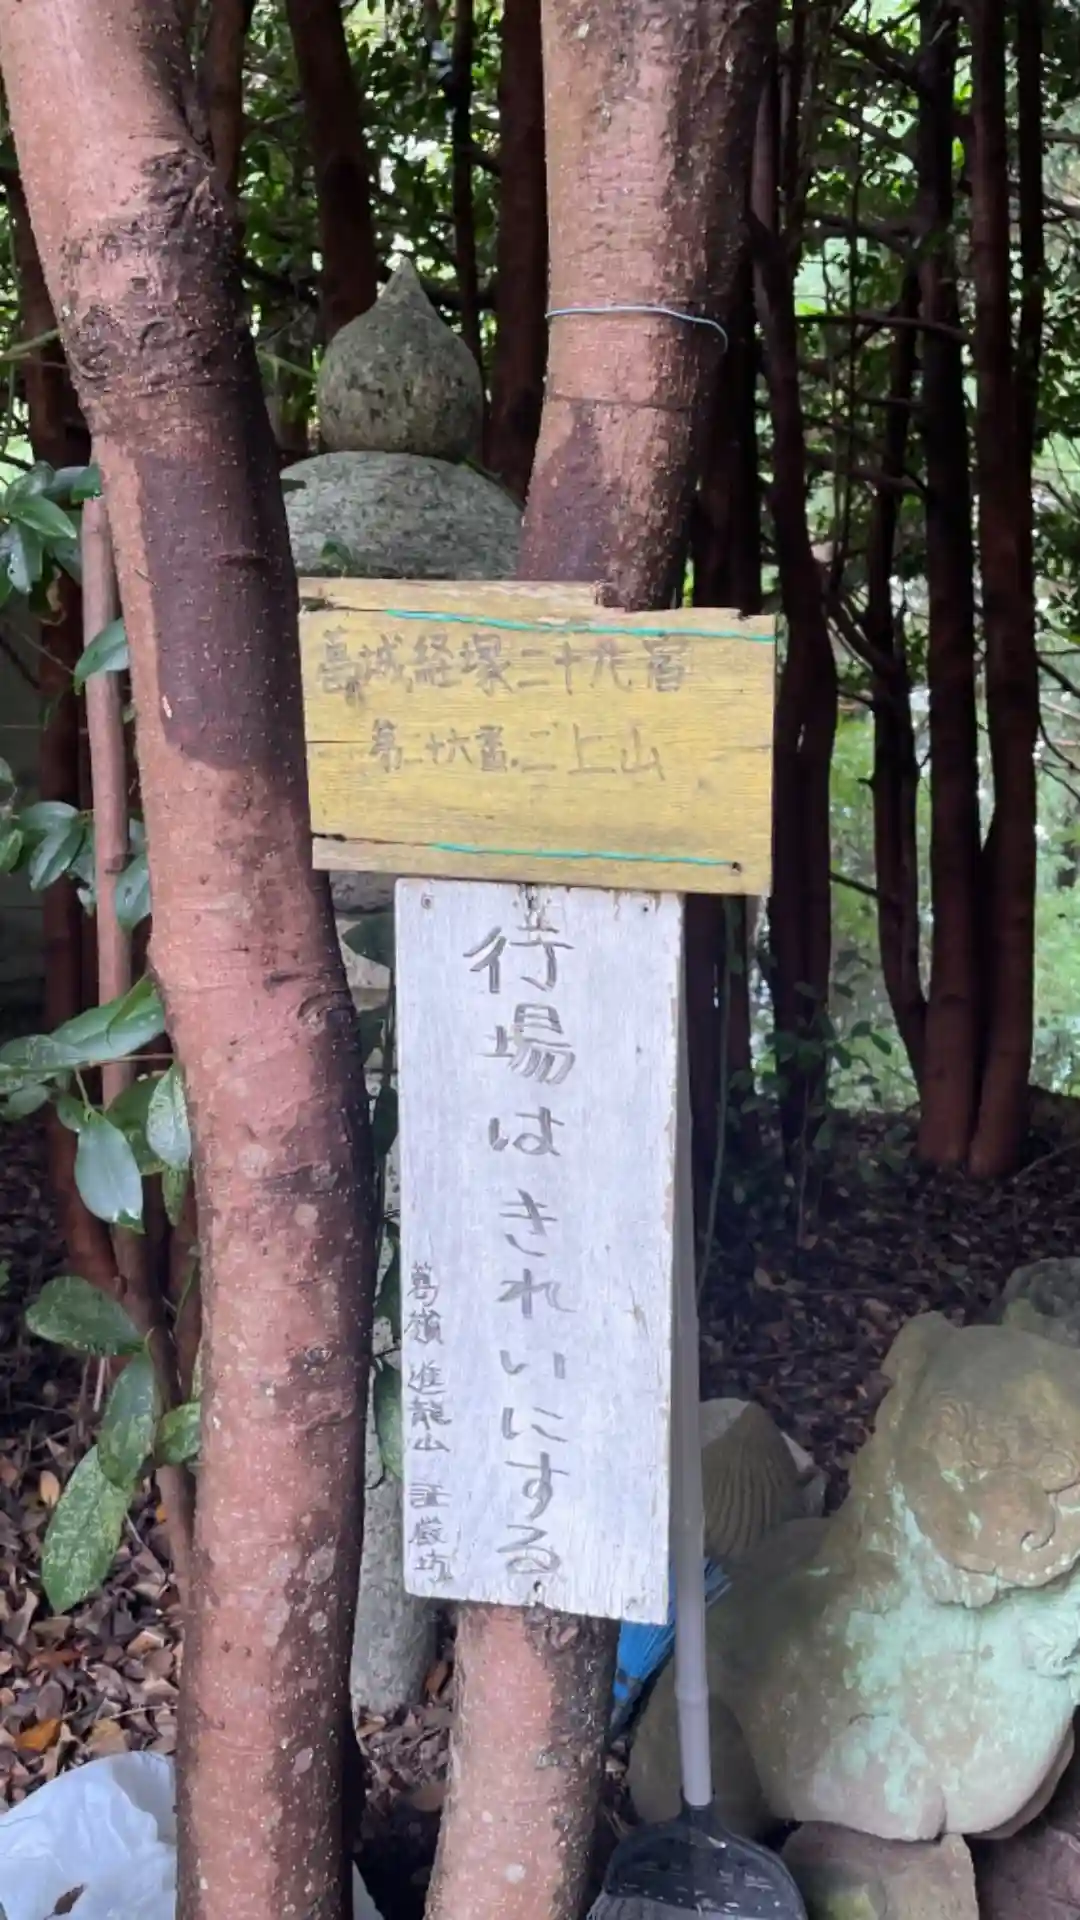 葛城経塚二十九宿
第二十六番 二上山
行場はきれいにする
葛嶺 進龍山 証厳坊